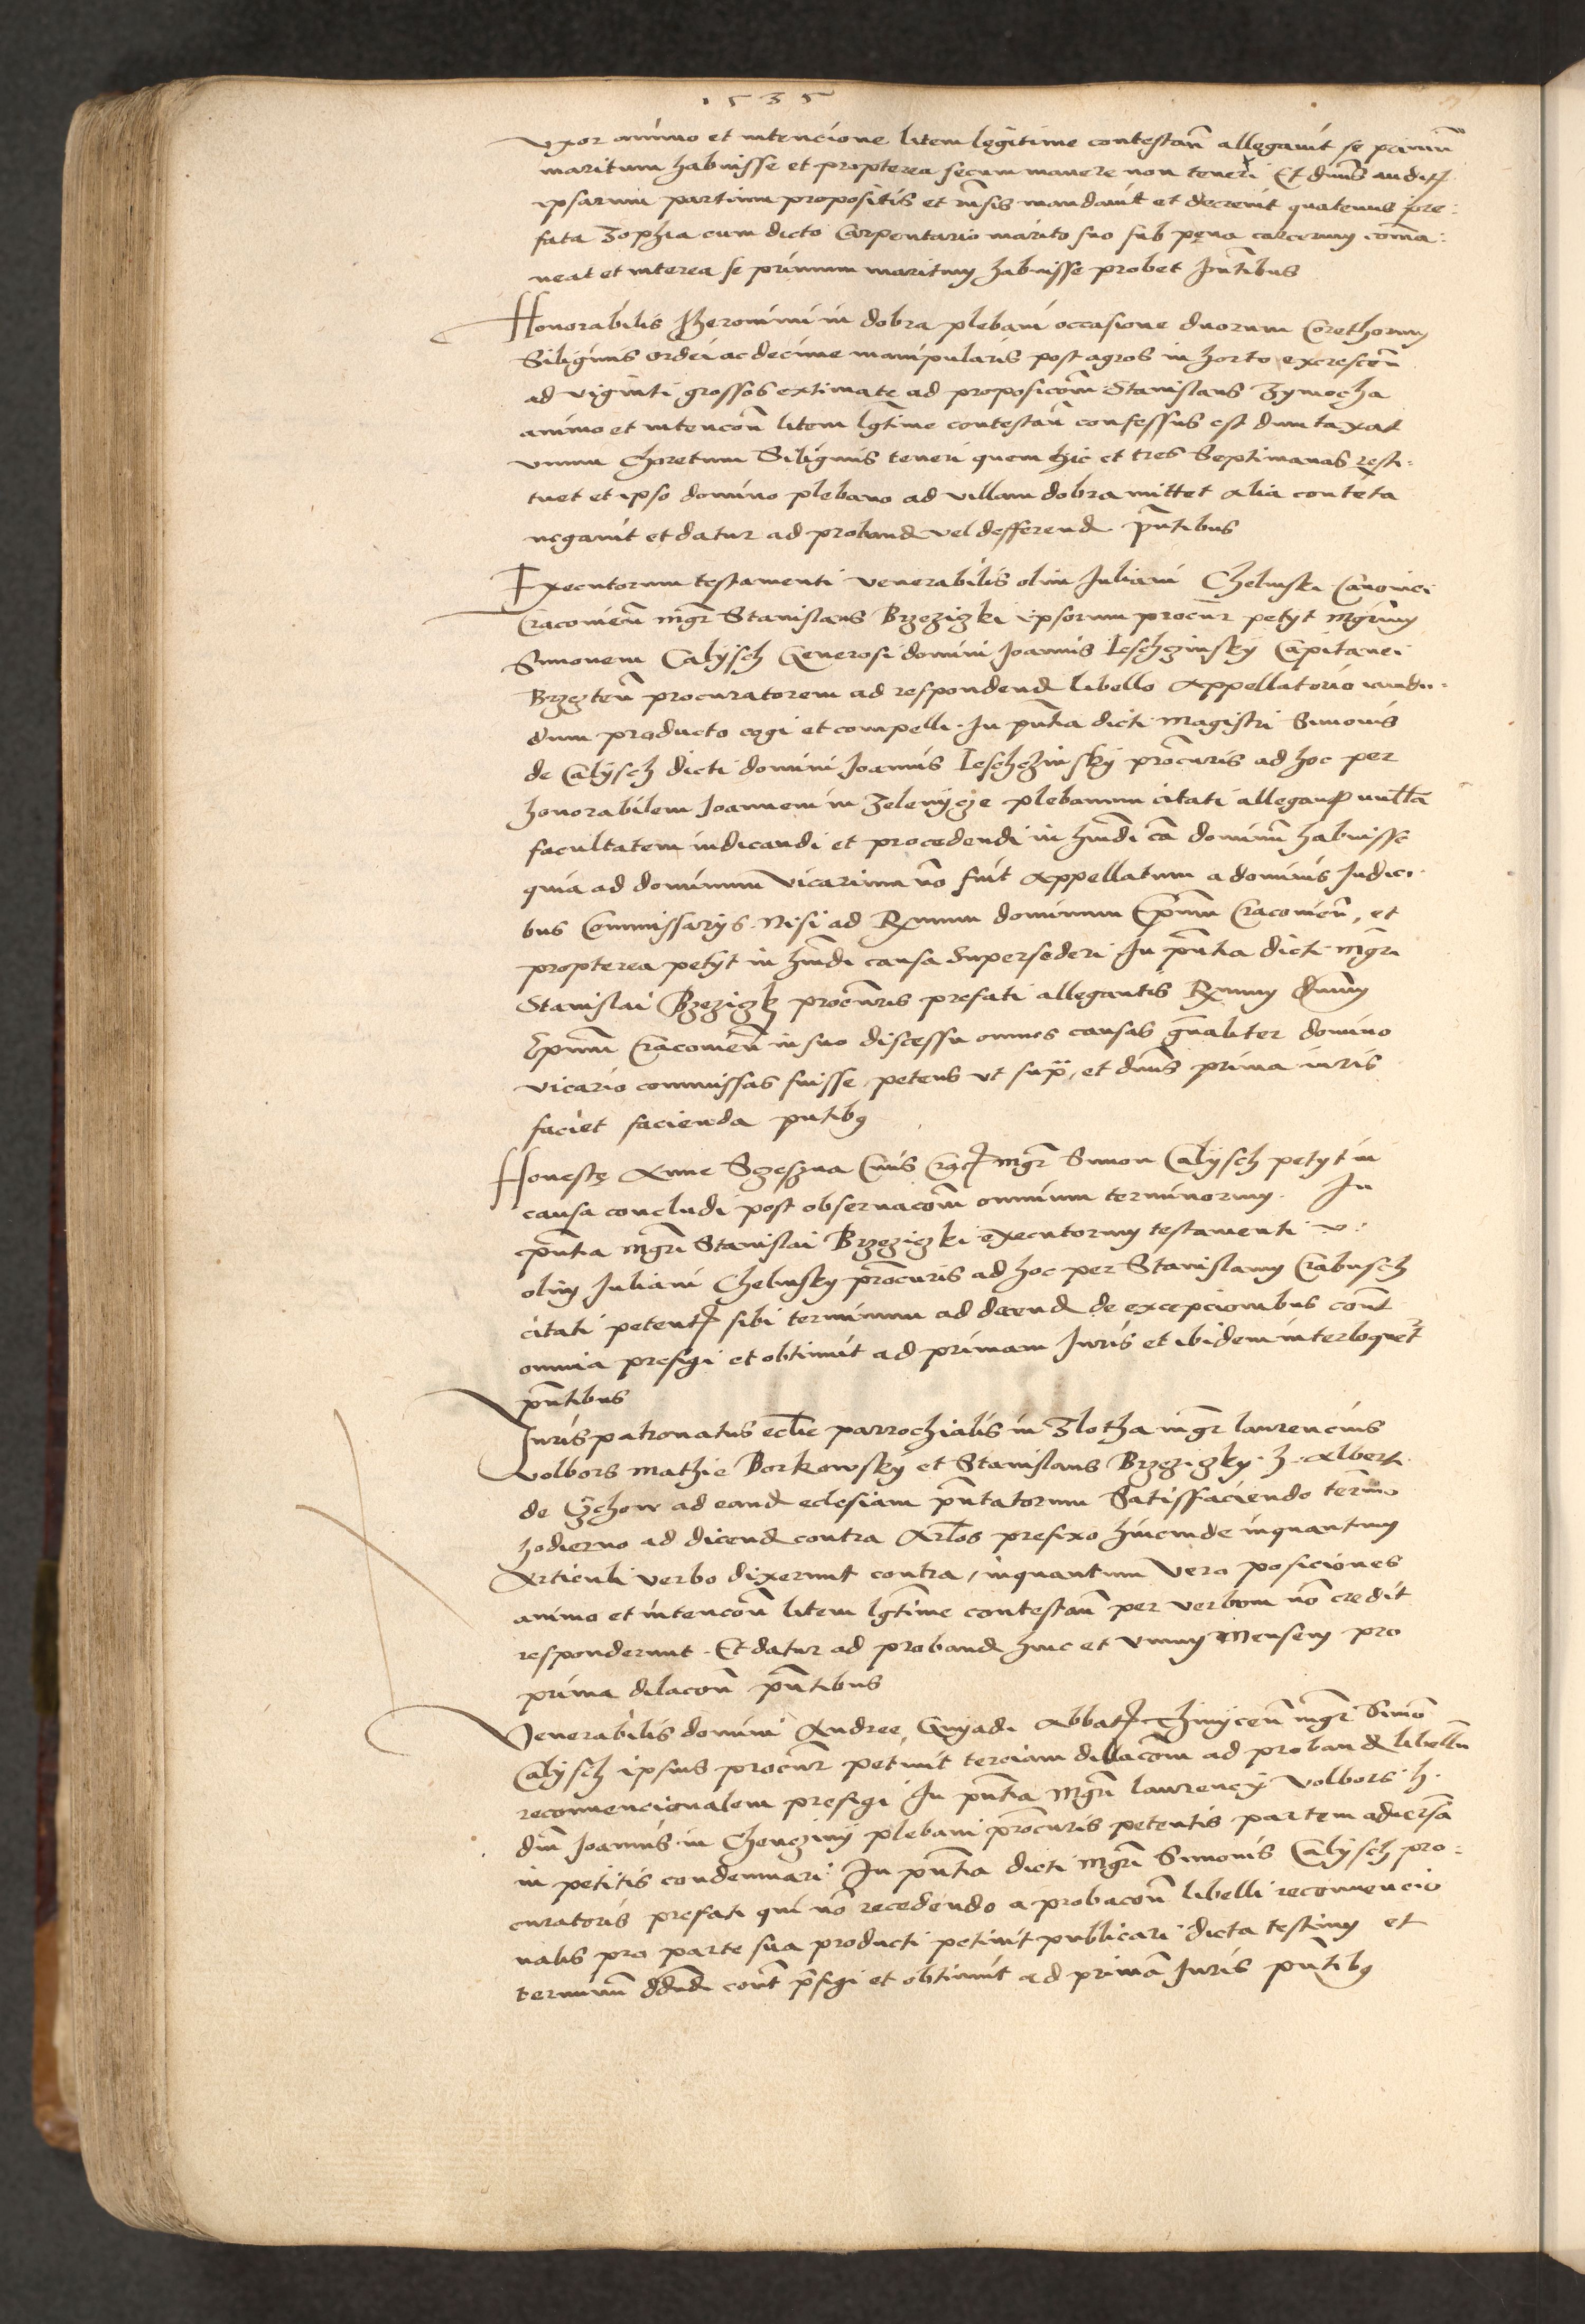 1535
vxor animo et intencione litem legitime contestan̄ allegavit se primū
maritum habuisse et propterea secum manere non teneri Et dn̄us auditis
ipsarum partium propositis et rn̄sis mandavit et decrevit quatenus pre:
fata Zophia cum dicto Carpentario marito suo sub pęna carcerum coma:
neat et interea se primum maritum habuisse probet pn̄tibus
Honorabilis Iheronimi in dobra plebani occasione duorum Corethorum
Siliginis ordei ac decime manipularis post agros in horto excrescen̄
ad viginti grossos extimatę ad proposicōm Stanislaus Zymocha
animo et intencōn litem lgt̄ime contestan̄ confessus est dumtaxat
vnum Choretum Siliginis teneri quem hic et tres Septimanas resti:
tuet et ipso domino plebano ad villam dobra mittet alia contēta
negavit et datur ad proband vel defferend pn̄tibus
Executorum testamenti venerabilis olim Iuliani Chelmski Canonici
Cracovien̄ mgr̄ Stanislaus Brzeziczki ipsorum procur̄ petyt mgr̄um
Simonem Calysch Generosi domini Joannis Ieschczinsky Capitanei
Brzezten̄ procuratorem ad respondend libello Appellatorio iamdu:
dum producto cogi et compelli. In pn̄tia dicti Magistri Simonis
de Calysch dicti domini Joannis Ieschczinsky procūris ad hoc per
honorabilem Joannem in Zelenycze plebanum citati allegan nullā
facultatem iudicandi et procedendi in hm̄di cā dominū habuisse
quia ad dominum vicarium nō fuit Appellatum a dominis Iudici
bus Commissarys. Nisi ad Rx̄mum dominum Ep̄um Cracovien̄, et
propterea petyt in hm̄di causa supersederi In pn̄tia dicti mgr̄i
Stanislai Brzeziczk procūris prefati allegantis Rx̄mum dn̄um
Ep̄um Cracovien̄ in suo discessu omnes causas gn̄aliter domino
vicario commissas fuisse petens vt supra, et dn̄us prima iuris
faciet facienda pn̄tibus
Honestę Anne Sczeszna Civis Crac mgr̄ Simon Calysch petyt in
causa concludi post observacōm omnium terminorum. In
pn̄tia mgr̄i Stanislai Brzeziczki executorum testamenti v:
olim Iuliani Chelmsky procūris ad hoc per Stanislaum Crabusch
citati petent sibi terminum ad dicend de excepcionibus cont̄
omnia prefigi et obtinuit ad primam Iuris et ibidem interloquet̄
pn̄tibus
Iuris patronatus ecclīe parrochialis in Zlotha mgr̄ laurencius
Volbors mathie Borkowsky et Stanislaus Brzeziczky. h. alberti
de Czchow ad eand eclesiam pn̄tatorum Satisfaciendo termino
hodierno ad dicend contra Arlos prefixo hincinde inquantum
Articuli verbo dixerunt contra, inquantum vero posiciones
animo et intencōn litem lgt̄ime contestan̄ per verbum nō credit
responderunt. Et datur ad proband hinc et vnum Mensem pro
prima dilacōn pn̄tibus
Venerabilis domini Andree, Gnyadi Abbat Thinycen̄ mgr̄ Simō
Calysch ipsius procur̄ petivit terciam dillacōm ad proband libellū
reconvencionalem prefigi In pn̄tia mgr̄i lawrency Volbors h.
dn̄i Joannis in Chencziny plebani procūris petentis partem adversā
in petitis condemnari: In pn̄tia dicti mgr̄i Simonis Calysch pro:
curatoris prefati qui nō recedendo a probacōn libelli reconvencio
nalis pro parte sua producti petivit publicari dicta testium et
terminū dd̄ndi cont̄ p̄figi et obtinuit ad primā Iuris pn̄tibus